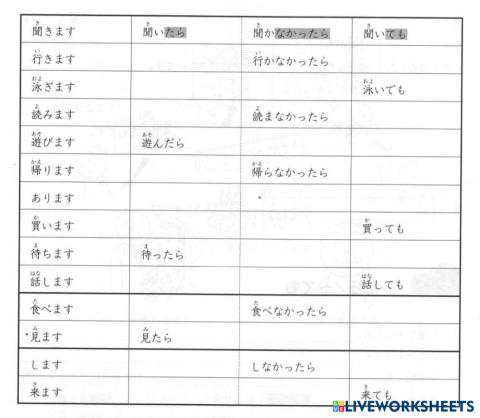 聞きます 聞いたら 聞かなかったら 聞いても
行きます 行かなかったら
泳ぎます 泳いでも
読みます 読まなかったら
遊びます 遊んだら
帰ります 帰らなかったら
あります
買います 買っても
待ちます 待ったら
話します 話しても
食べます 食べなかったら
見ます 見たら
します しなかったら
来ます 来ても
LIVEWORKSHEETS